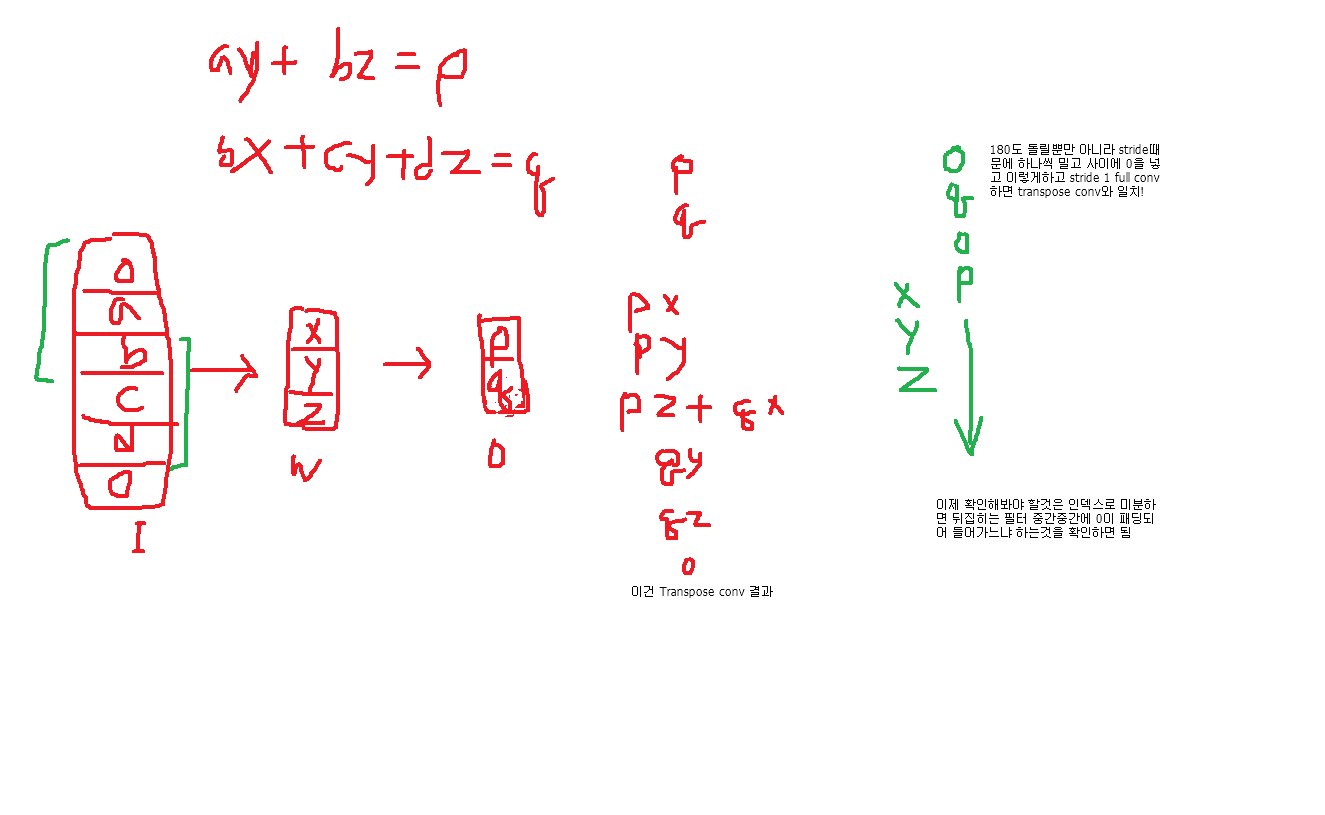 ay + bz = p
bx + cy + dz = q
0
a
b
c
d
0
I
x
y
z
W
p
q
O
p
q
px
py
pz + qx
qy
qz
0
이건 Transpose conv 결과
0
q
0
p
x
y
z
180도 돌릴뿐만 아니라 stride때
문에 하나씩 밀고 사이에 0을 넣
고 이렇게하고 stride 1 full conv
하면 transpose conv와 일치!
이제 확인해봐야 할것은 인덱스로 미분하
면 뒤집히는 필터 중간중간에 0이 패딩되
어 들어가느냐 하는것을 확인하면 됨